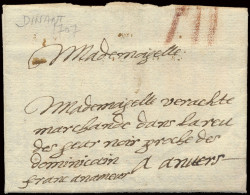 DINANT
1757
Mademoizelle
Mademoizelle verachte
marchande dans la reu
des sear noir proche des
dominicain A anvers
franc anameur